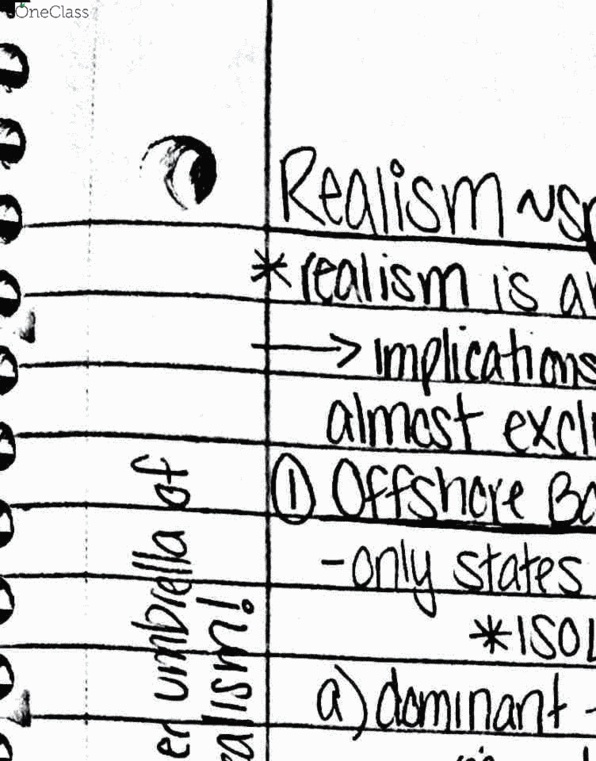 OneClass
Realism ~ us
* realism is a
→ implications
almost excl
① Offshore Ba
- only states
* ISOL
a) dominant -
er umbrella of
alism!